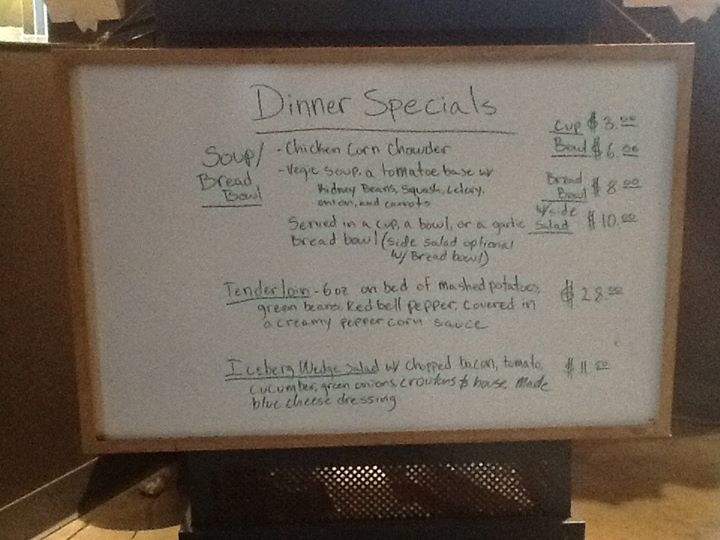 Dinner Specials
Cup $3.00
Soup/ - Chicken Corn Chowder Bowl $6.00
Bread - Vegie soup, a tomatoe base w/
Bowl Kidney Beans, Squash, Celery, Bread $8.00
onion, and carrots Bowl
Served in a cup, a bowl, or a garlic w/side $10.00
Bread bowl (side salad optional Salad
w/ Bread bowl)
Tenderloin - 6oz on bed of mashed potatoes, $28.00
green beans, Red bell pepper, covered in
a creamy peppercorn sauce
Iceberg Wedge Salad w/ chopped bacon, tomato, $11.00
cucumber, green onions, croutons & house made
blue cheese dressing